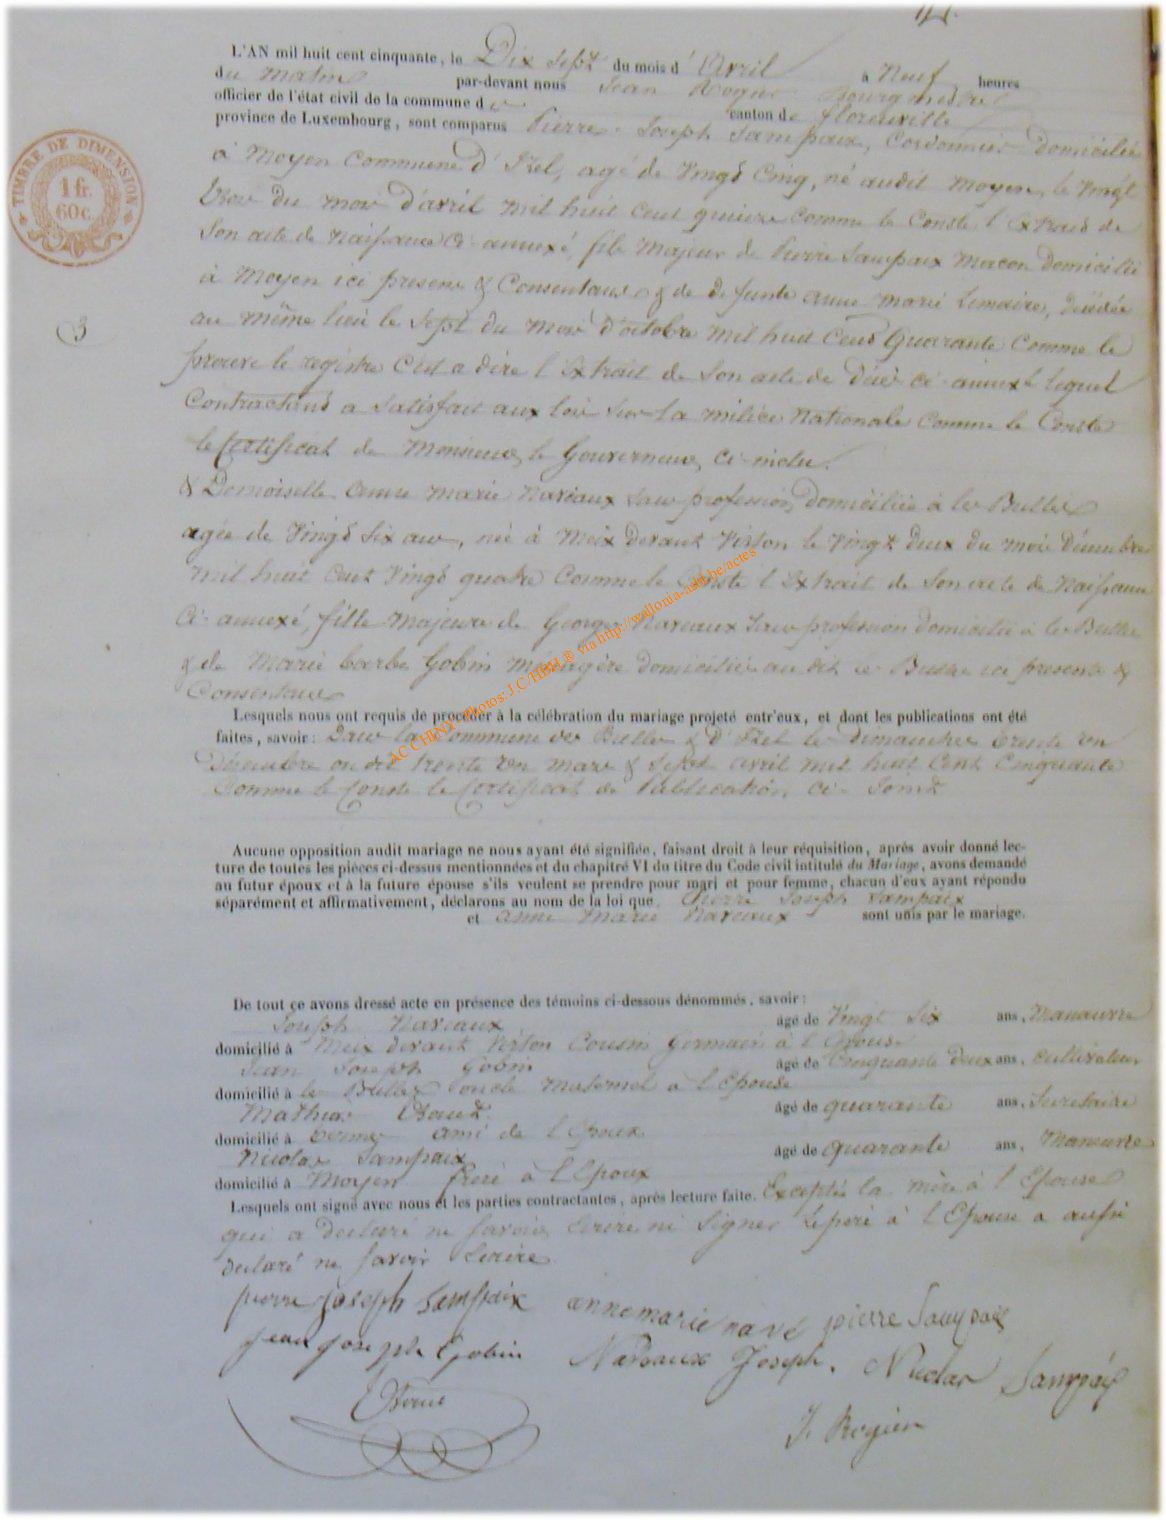 L'AN mil huit cent cinquante, le Dix Sept du mois d'Avril à Neuf heures
du matin par-devant nous Jean Bourgmestre
officier de l'état civil de la commune d canton de florenville
province de Luxembourg, sont comparus Pierre Joseph Sampaix, Cordonnier domicilié
à Moyen Commune d'Izel, agé de Vingt Cinq, né audit moyen, le Vingt
Trois Du mois d'avril mil huit cent quinze comme le Conste l'Extrait de
Son acte de naissance ci-annexé, fils majeur de Pierre Sampaix macon Domicilié
à Moyen ici present & Consentant & de defunte anne marie Lemaire, décédée
au même lieu le Sept du mois d'octobre mil huit Cent Quarante Comme le
prouve le registre C'est a dire l'Extrait de Son acte de Décè ci-annexé lequel
Contractant a Satisfait aux lois Sur la milice Nationale Comme le Conste
le Certificat de Monsieur le Gouverneur, ci-inclu.
& Demoiselle anne marie Naveaux Sans profession, domiciliée à les Bulles
agée de Vingt Six ans, née à Meix devant Virton le Vingt deux du mois Décembre
mil huit Cent Vingt quatre Comme le Conste l'Extrait de Son acte de Naissance
Ci-annexé, fille majeure de George Naveaux Sans profession domicilié à les Bulles
& de Marie barbe Gobin Ménagère domiciliée au dit les Bulles ici presente &
Consentans
Lesquels nous ont requis de procéder à la célébration du mariage projeté entr'eux, et dont les publications ont été
faites, savoir: Dans la Commune des Bulles & d'Izel les dimanches trente un
Décembre on dit trente un mars & Sept avril mil huit Cent Cinquante
Comme le Conste le Certificat de Publication, Ci-Joint
Aucune opposition audit mariage ne nous ayant été signifiée, faisant droit à leur réquisition, après avoir donné lec-
ture de toutes les pièces ci-dessus mentionnées et du chapitre VI du titre du Code civil intitulé du Mariage, avons demandé
au futur époux et à la future épouse s'ils veulent se prendre pour mari et pour femme, chacun d'eux ayant répondu
séparément et affirmativement, déclarons au nom de la loi que Pierre Joseph Sampaix
et anne marie Naveaux sont unis par le mariage.
De tout ce avons dressé acte en présence des témoins ci-dessous dénommés, savoir:
Joseph Naveaux agé de Vingt Six ans, Manoeuvre
domicilié à Meix devant Virton Cousin Germain à l'Epouse
Jean Joseph Gobin agé de Cinquante deux ans, cultivateur
domicilié à les Bulles oncle maternel a l'Epouse
Mathias agé de quarante ans, Secretaire
domicilié à ami de l'Epoux
Nicolas Sampaix agé de quarante ans, Manoeuvre
domicilié à Moyen frere à l'Epoux
Lesquels ont signé avec nous et les parties contractantes, après lecture faite. Exceptés la mère à l'Epouse
qui a declaré ne Savoir Ecrire ni Signer Le pere à l'Epouse a aussi
declaré ne Savoir Ecrire
pierre joseph Sampaix annemarie navé pierre Sampaix
jean joseph Gobin Naveaux Joseph. Nicolas Sampaix
J. Rogier
TIMBRE DE DIMENSION
1 fr.
60c.
3
AC CHINY Photos: J.C. HBH ® via http://wallonia-asbl.be/actes